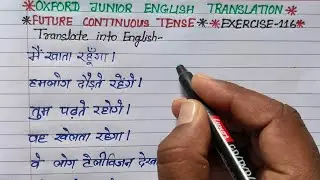 *OXFORD JUNIOR ENGLISH TRANSLATION*
*FUTURE CONTINUOUS TENSE* *EXERCISE-116*
Translate into English-
मैं खाता रहूँगा।
हमलोग दौड़ते रहेंगे।
तुम पढ़ते रहोगे।
वह खेलता रहेगा।
वे लोग टेलीविजन देख